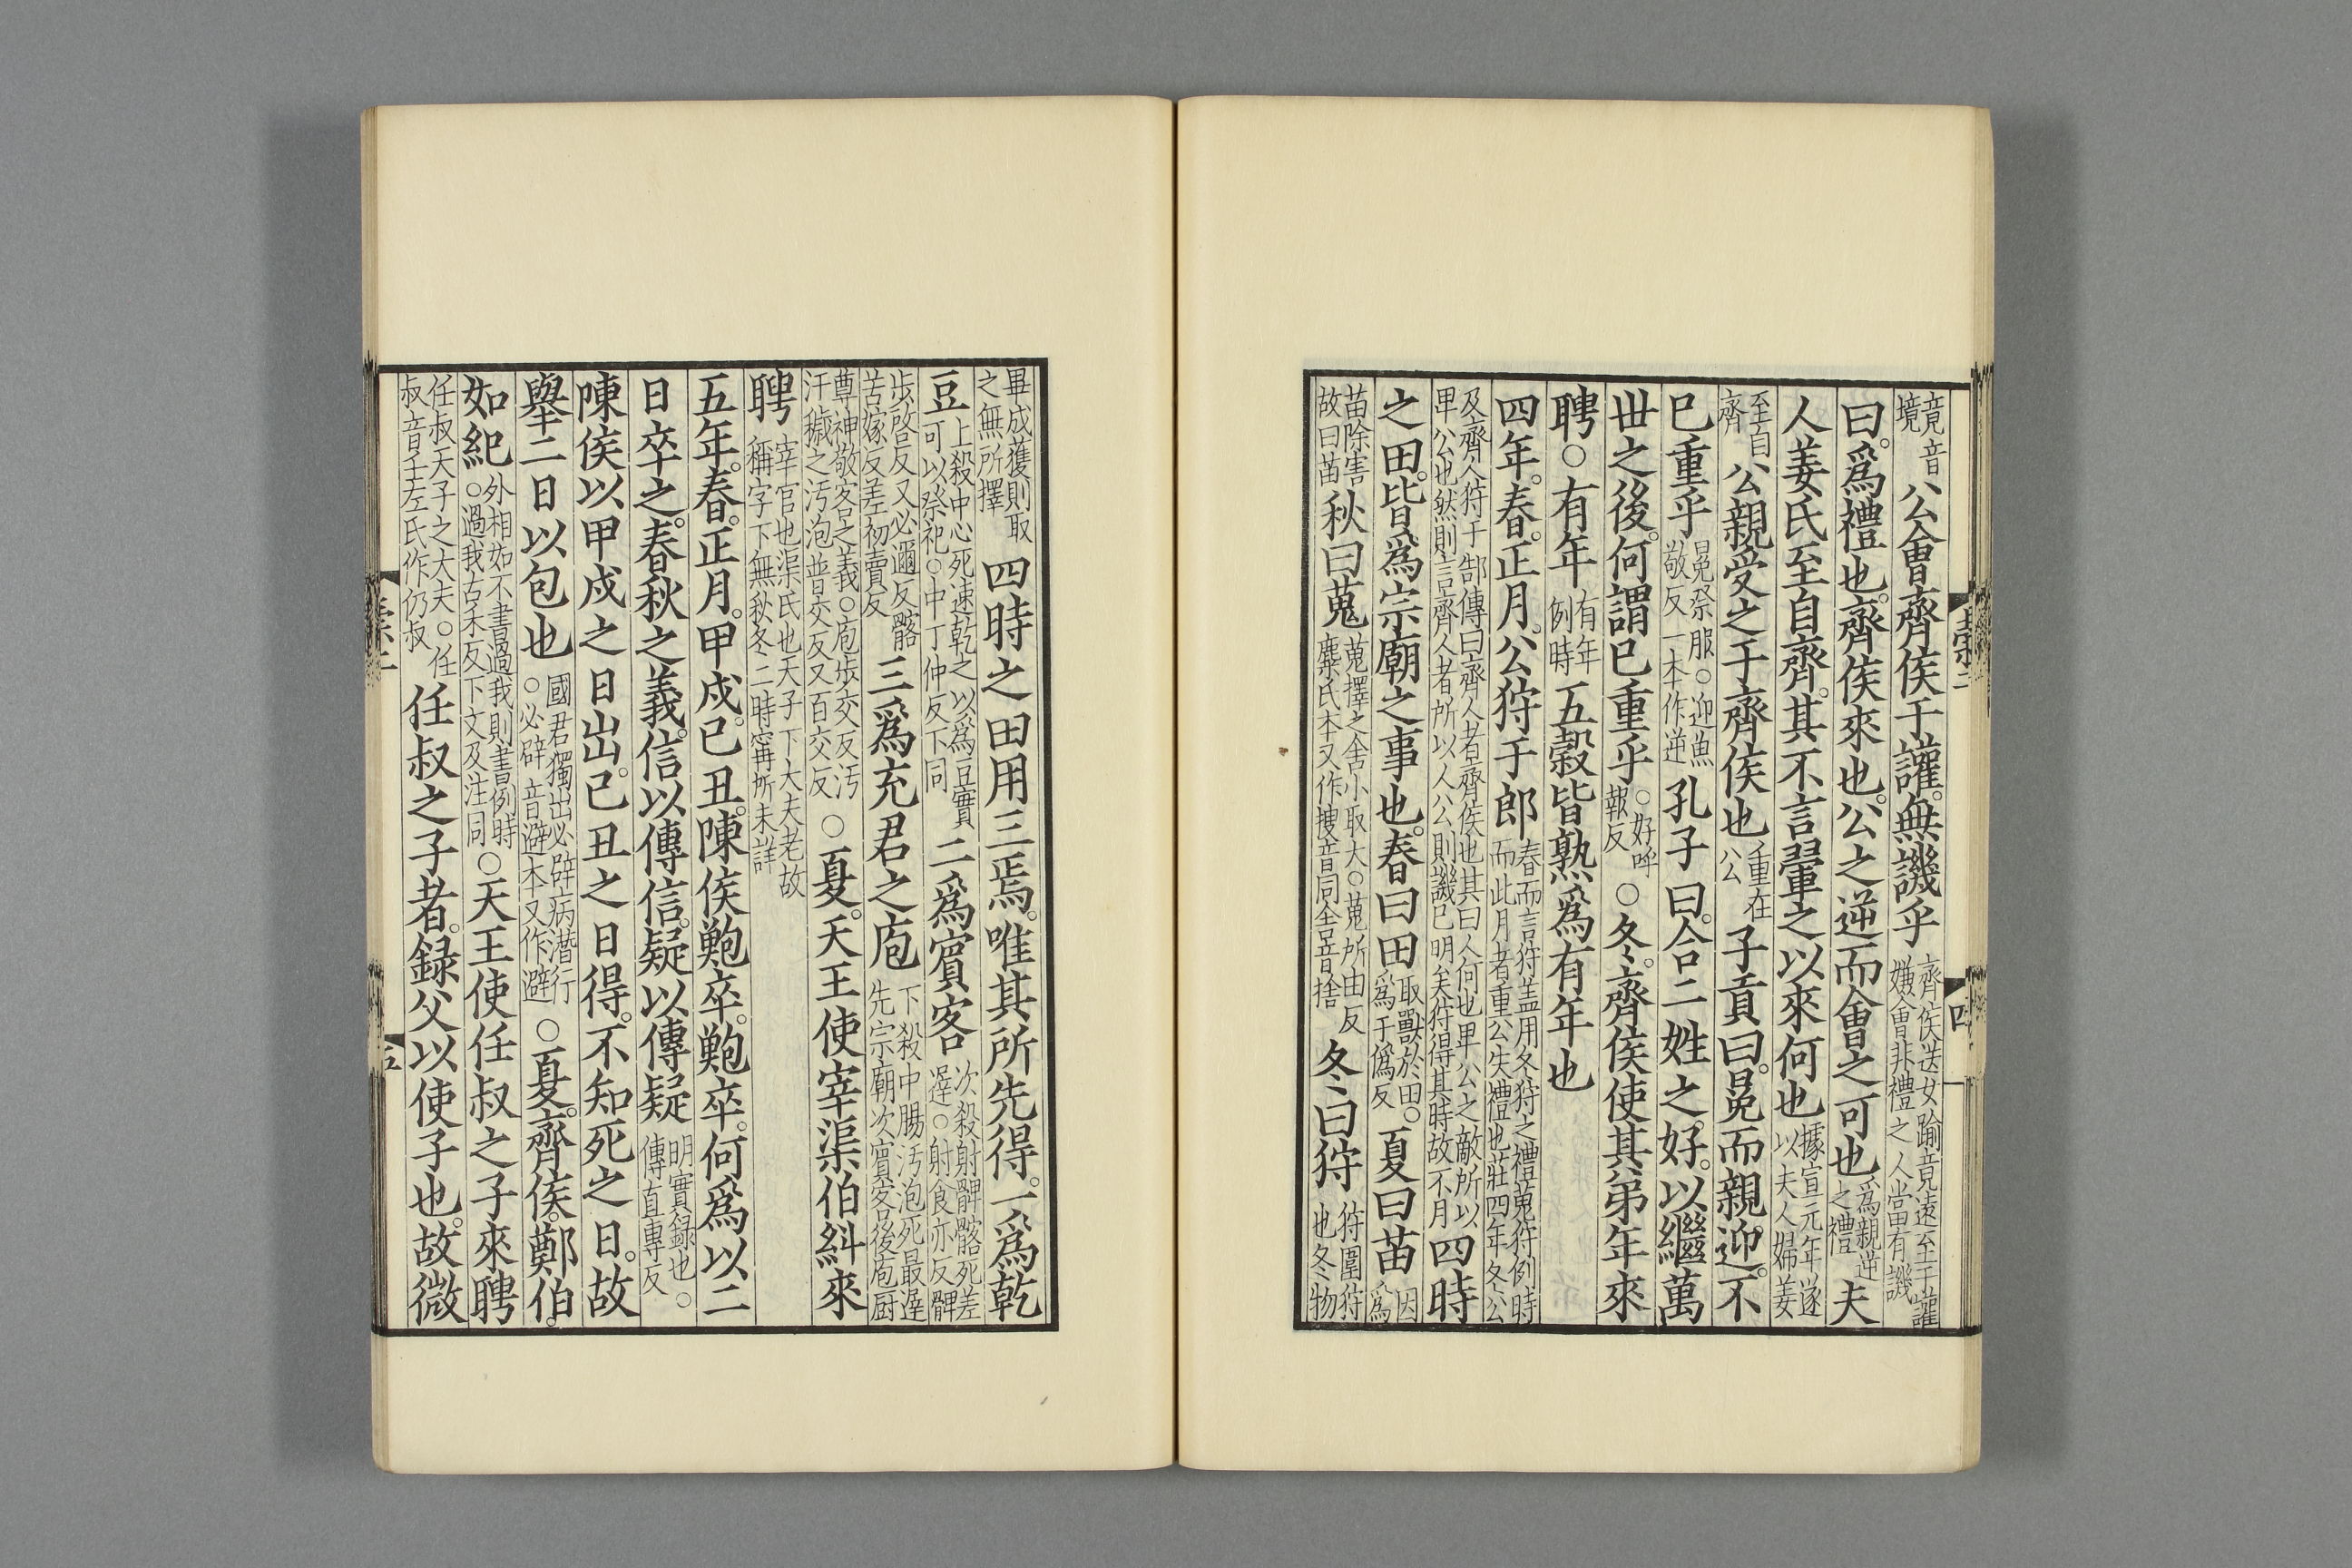 竟音境公會齊侯于讙。無譏乎齊侯送女踰竟遠至于讙嫌會非禮之人當有譏
曰。爲禮也。齊侯來也。公之逆而會之可也爲親逆之禮夫
人姜氏至自齊。其不言翬之以來何也據宣元年遂以夫人婦姜
至自齊公親受之于齊侯也重在公子貢曰。冕而親迎。不
巳重乎冕祭服○迎魚敬反一本作逆孔子曰。合二姓之好。以繼萬
世之後。何謂巳重乎○好呼報反○冬。齊侯使其弟年來
聘○有年有年例時五穀皆熟爲有年也
四年。春。正月。公狩于郎春而言狩蓋用冬狩之禮蒐狩例時而此月者重公失禮也莊四年冬公
及齊人狩于郜傳曰齊人者齊侯也其曰人何也卑公之敵所以卑公也然則言齊人者所以人公則譏巳明矣狩得其時故不月四時
之田。皆爲宗廟之事也。春曰田取獸於田○爲于僞反夏曰苗因爲
苗除害故曰苗秋曰蒐蒐擇之舍小取大○蒐所由反麋氏本又作搜音同舍音捨冬曰狩狩圍狩也冬物
畢成獲則取之無所擇四時之田用三焉。唯其所先得。一爲乾
豆上殺中心死速乾之以爲豆實可以祭祀○中丁仲反下同二爲賓客次殺射髀髂死差遲○射食亦反髀
步啓反又必邇反髂苦嫁反差初賣反三爲充君之庖下殺中腸汚泡死最遲先宗廟次賓客後庖厨
尊神敬客之義○庖步交反汚汗穢之汚泡普交反又百交反○夏。天王使宰渠伯糾來
聘宰官也渠氏也天子下大夫老故稱字下無秋冬二時甯所未詳
五年。春。正月。甲戍。己丑。陳侯鮑卒。鮑卒。何爲以二
日卒之。春秋之義。信以傳信。疑以傳疑明實録也○傳直專反
陳侯以甲戍之日出。己丑之日得。不知死之日。故
舉二日以包也國君獨出必辟病潛行○必辟音避本又作避○夏。齊侯。鄭伯。
如紀外相如不書過我則書例時○過我古禾反下文及注同○天王使任叔之子來聘
任叔天子之大夫○任叔音壬左氏作仍叔任叔之子者。録父以使子也。故微